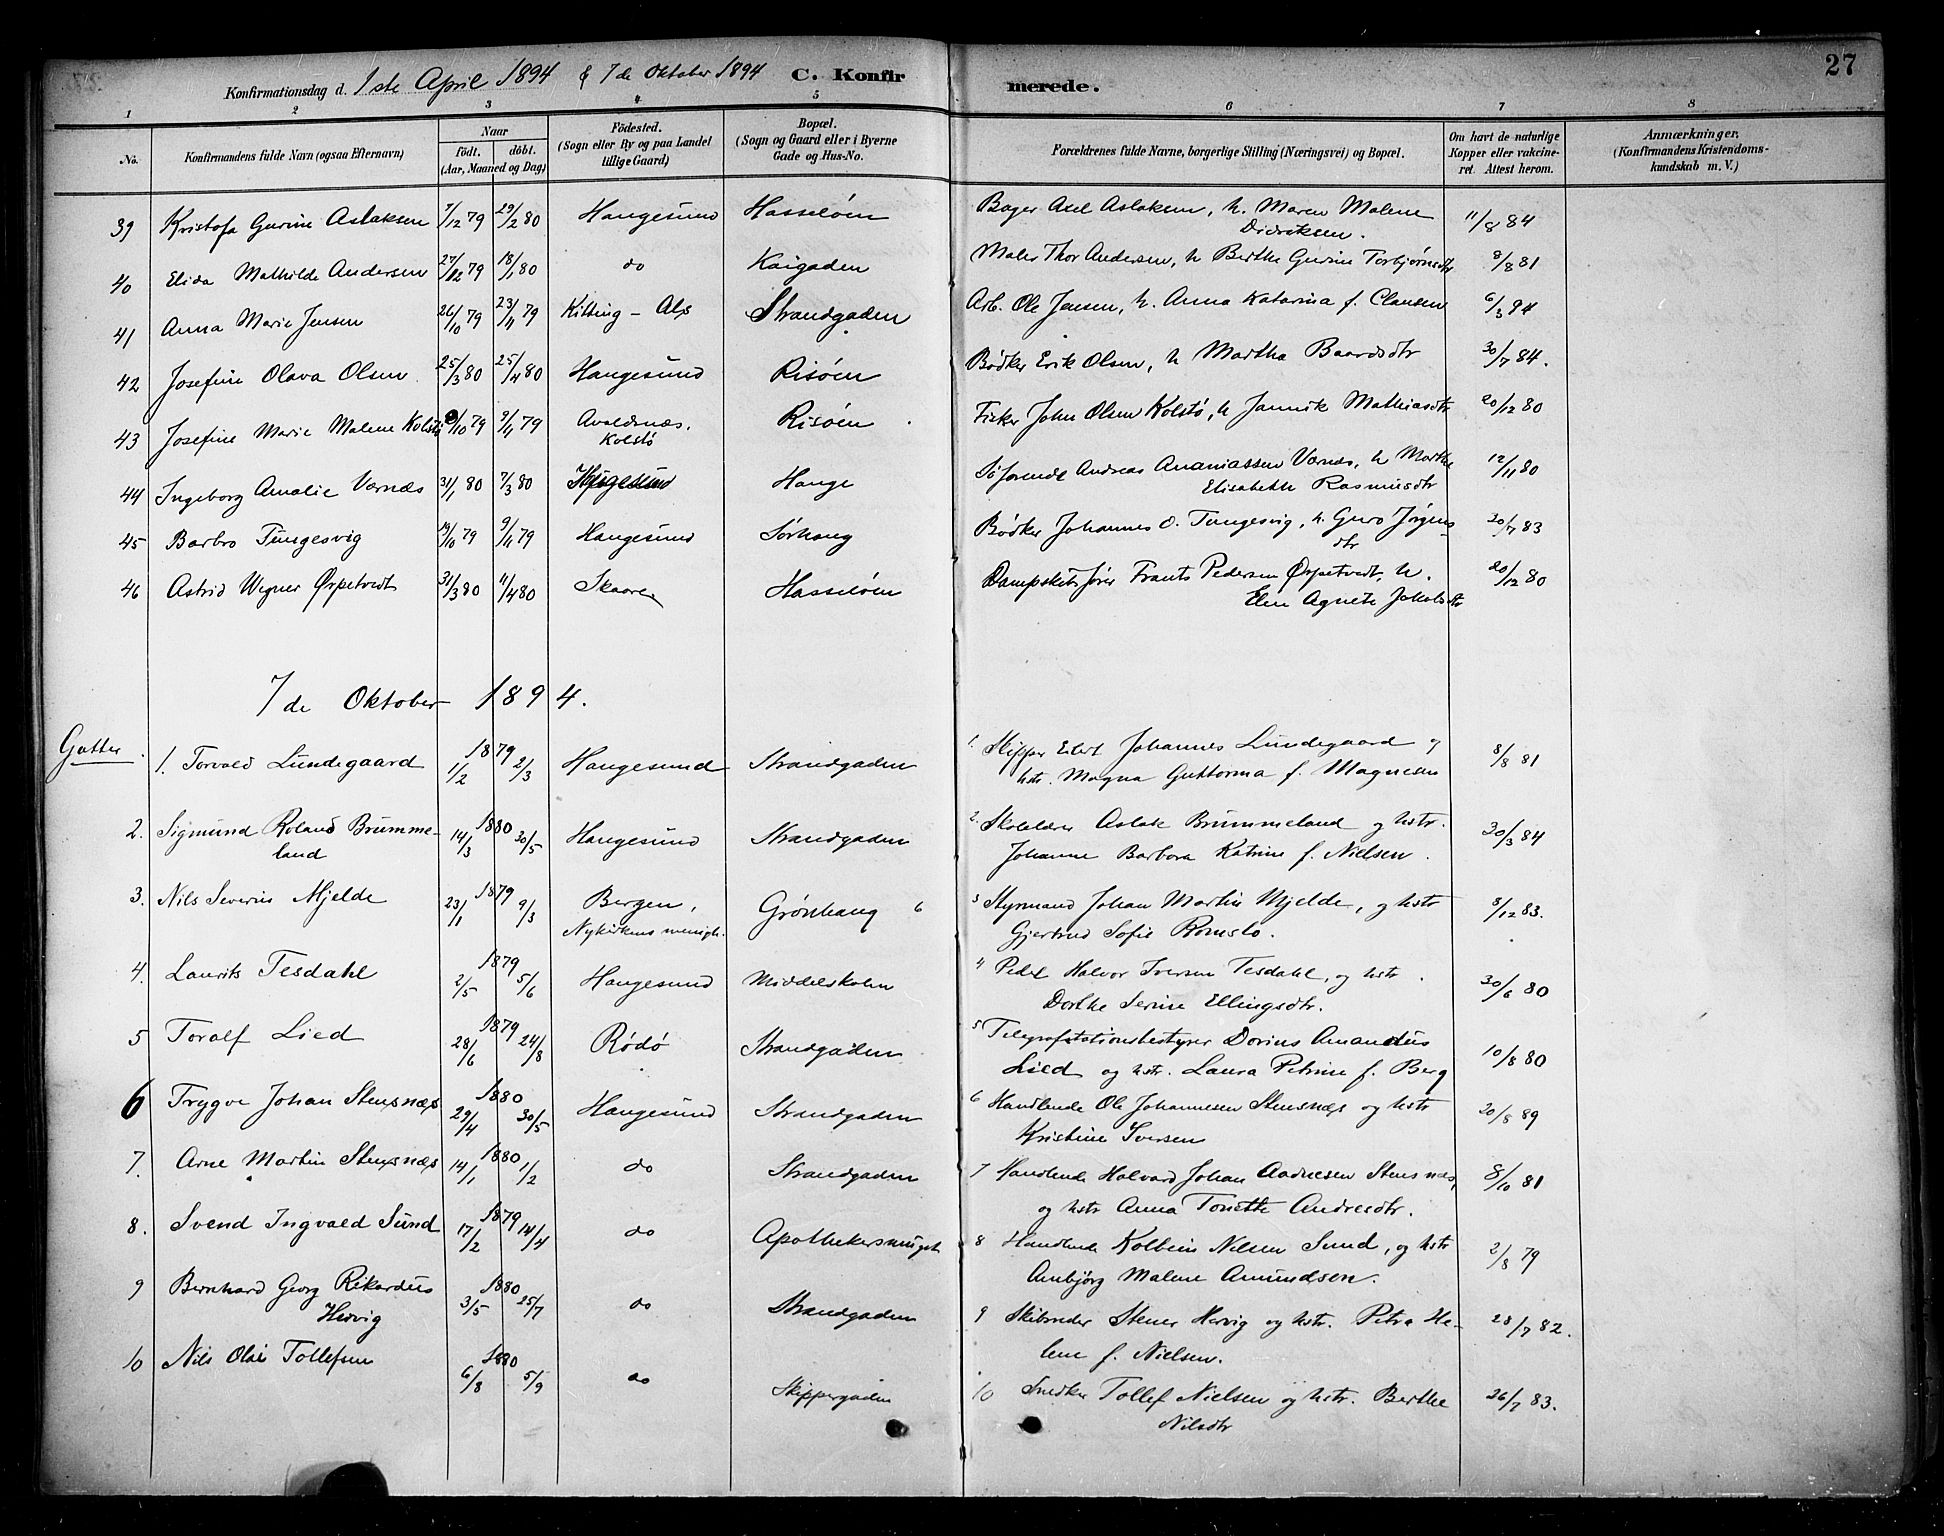 Konfirmationsdag d. 1ste April 1894 & 7de Oktober 1894 C. Konfirmerede. 27
1 2 3 4 5 6 7 8
No. Konfirmandens fulde Navn (ogsaa Efternavn) Naar födt. döbt. (Aar, Maaned og Dag) Födested. (Sogn eller By og paa Landet tillige Gaard) Bopæl. (Sogn og Gaard eller i Byerne Gade og Hus-No. Forældrenes fulde Navne, borgerlige Stilling (Næringsvei) og Bopæl. Om havt de naturlige Kopper eller vakcineret. Attest herom. Anmærkninger. (Konfirmandens Kristendomskundskab m. V.)
39 Kristofa Gurine Aslaksen 7/12 79 29/2 80 Haugesund Hasseløen Bager Axel Aslaksen, h. Maren Malene 11/8 84
Didriksen.
40 Elida Mathilde Andersen 27/12 79 18/1 80 do Kaigaden Maler Thor Andersen, h Berthe Gurine Torbjørnsdtr 8/8 81
41 Anna Marie Jensen 26/10 79 23/11 79 Kitting - Als Strandgaden Arb. Ole Jensen, h. Anna Katarina f. Clausen 6/3 94
42 Josefine Olava Olsen 25/3 80 25/4 80 Haugesund Risøen Bødker Erik Olsen, h Martha Baardsdtr 30/7 84.
43 Josefine Marie Malene Kolstø /10 79 9/11 79 Avaldsnæs, Risøen Fisker John Olsen Kolstø, h Jannik Mathiasdtr 20/12 80
Kolstø
44 Ingeborg Amalie Værnæs 31/1 80 7/3 80 Haugesund Hauge Søfarende Andreas Ananiassen Værnæs, h Marthe 12/11 80
Elisabeth Rasmusdtr
45 Barbro Tungesvig 19/10 79 9/11 79 Haugesund Sørhaug Bødker Johannes O. Tungesvig, h. Guro Jørgens- 30/7 83
dtr
46 Astrid Wegner Ørpetvedt 31/3 80 11/4 80 Skaare Hasseløen Dampskibsfører Frants Pedersen Ørpetvedt, h. 20/12 80
Elen Agnete Jakobsdtr
7de Oktober 1894.
Gutter.
1. Torvald Lundegaard 1879 1/2 2/3 Haugesund Strandgaden 1. Skipper Eilert Johannes Lundegaard og 8/8 81
hstr. Magna Guttorma f. Magnesen
2. Sigmund Roland Brumme- 1880 14/3 30/5 Haugesund Strandgaden 2. Skolelærer Aslak Brummeland og hstr. 30/3 84
land Johanne Barbora Katrine f. Nielsen.
3. Nils Severin Mjelde 1879 23/1 9/3 Bergen, Grønhaug 6 3 Styrmand Johan Martin Mjelde, og hstr 8/12 83.
Nykirkens menigh. Gjertrud Sofie Romslo.
4. Laurits Tesdahl 1879 2/5 5/6 Haugesund Middelskolen 4 Pedel Halvor Iversen Tesdahl, og hstr. 30/6 80
Dorthe Serine Ellingsdtr.
5 Toralf Lied 1879 28/6 24/8 Rødø Strandgaden 5 Telegrafstationsbestyrer Dorius Amandus 10/8 80
Lied og hstr. Laura Petrine f. Berg
6 Trygve Johan Stensnæs 1880 29/4 30/5 Haugesund Strandgaden 6 Handlende Ole Johannesen Stensnæs og hstr 20/8 89
Kristine Iversen
7. Arne Martin Stensnæs 1880 14/1 1/2 do Strandgaden 7 Handlende Halvard Johan Aadnesen Stensnæs, 8/10 81
og hstr Anna Tonette Andresdtr.
8. Svend Ingvald Sund 1879 17/2 14/4 do Apothekersmuget 8 Handlende Kolbein Nilsen Sund, og hstr 2/8 79
Anbjörg Malene Amundsen.
9 Bernhard Georg Rikardus 1880 3/5 25/7 do Strandgaden 9 Skibsreder Stener Hervig og hstr. Petra He- 28/7 82.
Hervig lene f. Nielsen.
10 Nils Olai Tollefsen 1880 6/8 5/9 do Skippergaden 10 Snedker Tollef Nielsen og hstr. Berthe 26/7 83.
Nilsdtr